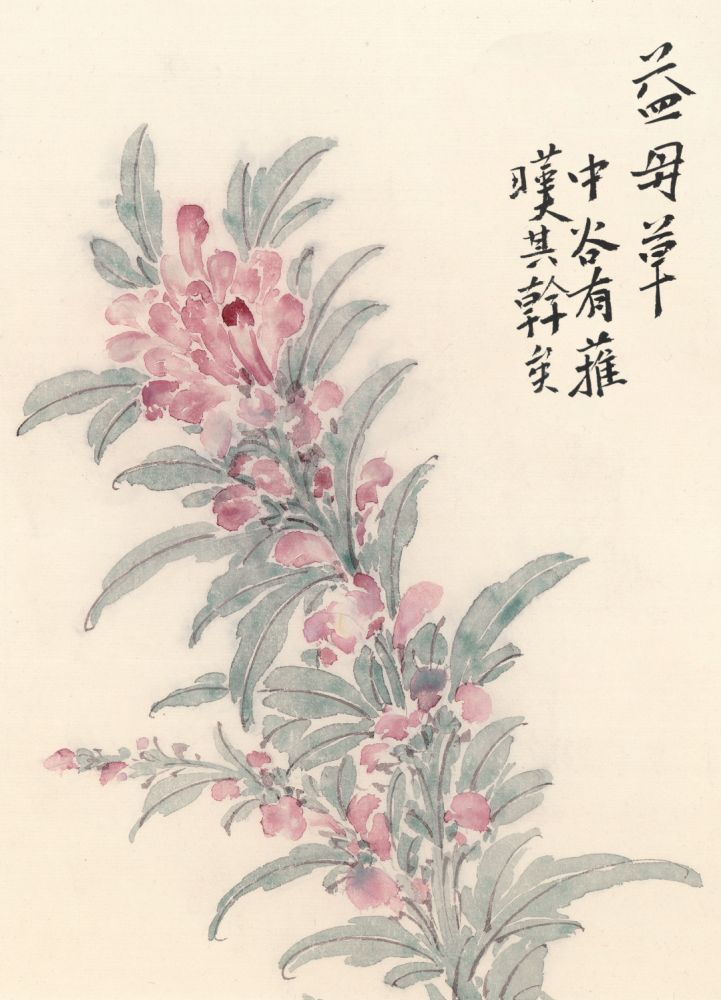 益母草
中谷有蓷
暵其幹矣